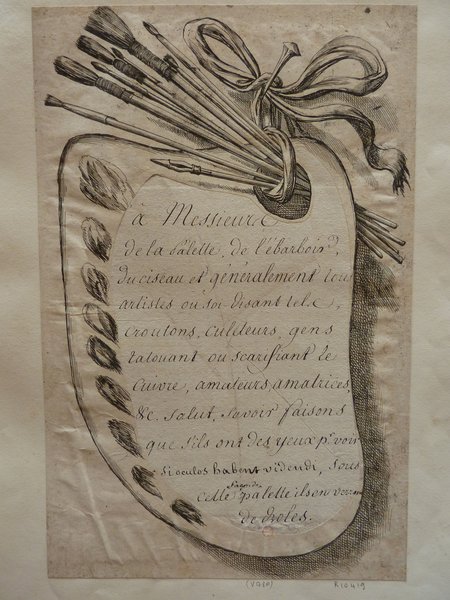 à Messieurs
de la Palette, de l'ébarboir,
du ciseau et généralement tous
artistes ou soi disant tels,
croutons, culdeurs, gens
tatouant ou scarifiant le
Cuivre, amateurs, amatrices,
&c. Salut, savoir faisons
que s'ils ont des yeux pr. voir
si oculos habent videndi,
Celle palette ils en verront
de droles.
(VOSA)
R10419